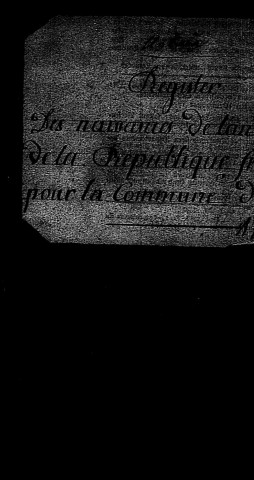 Register
Des naisances de l'an
de la Republique fr
pour la Commune D